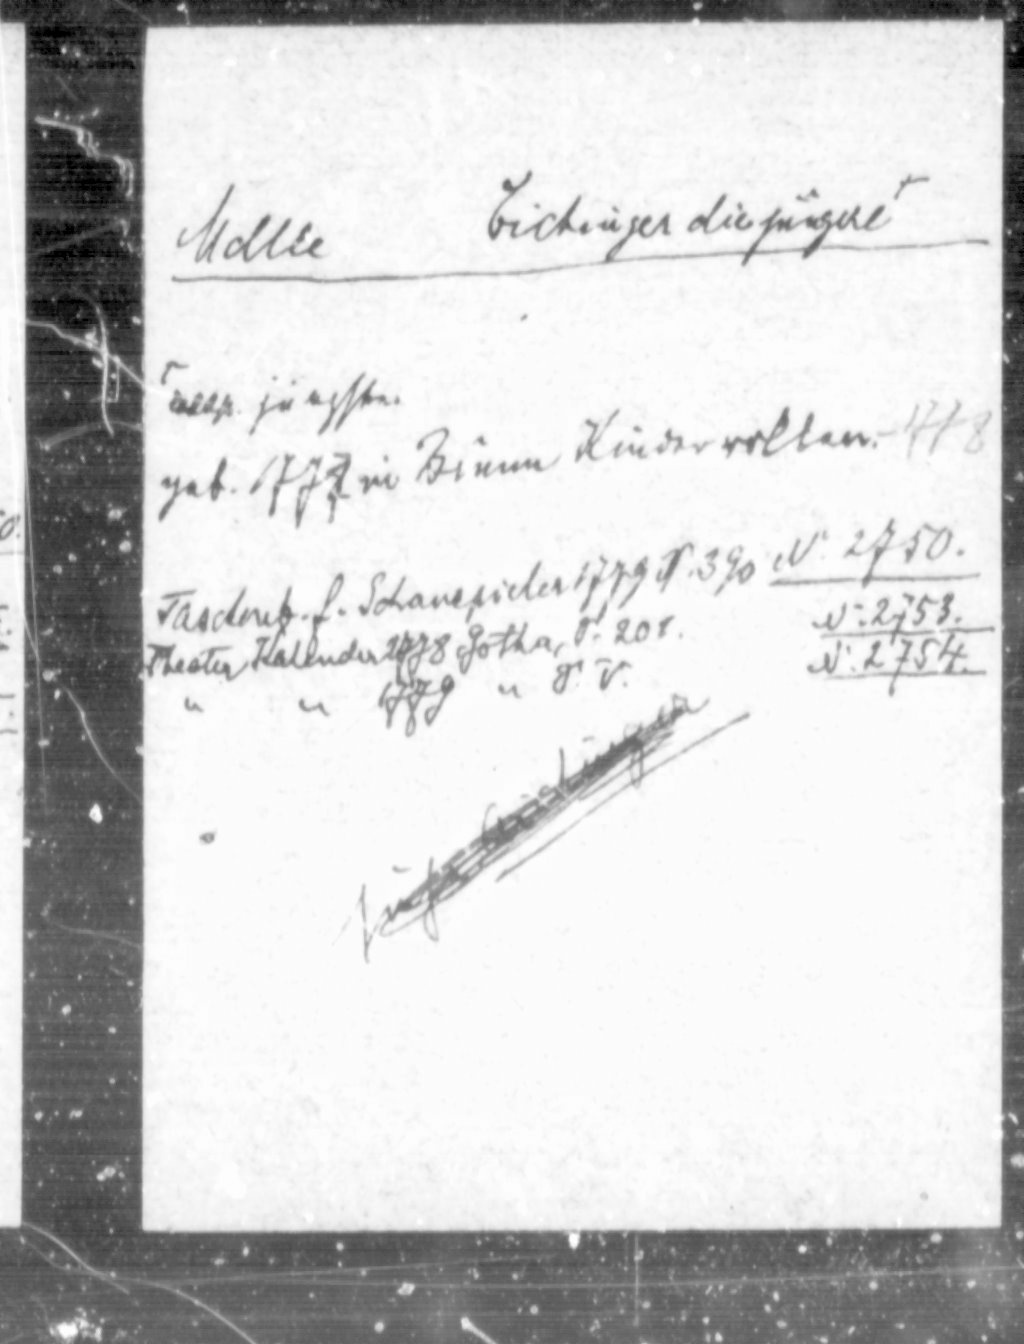 Mdlle Eichinger die jüngere
resp. jüngste.
geb. 177 in Kinderrollen. 1778
Taschenb. f. Schauspieler 1779 S. 390 N. 2750.
Theater Kalender 1778 Gotha, S. 201. N. 2753.
" " 1779 " S. V. N. 2754.